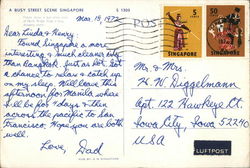 A BUSY STREET SCENE SINGAPORE
S 1303
Mar. 18, 1972
Dear Linda & Henry
Found Singapore a more
interesting & much cleaner city
than Bangkok. Just as hot. Got
a chance to relax & catch up
on my sleep. Will leave this
afternoon for Manila where I
will be for 4 days & then
across the pacific to San
Francisco. Hope you are both
well.
Love, Dad
5 CENTS
SINGAPORE
50
SINGAPORE
Mr. & Mrs.
H. W. Diggelmann
Apt. 122 Hawkeye Ct.
Iowa City, Iowa 52240
USA
LUFTPOST